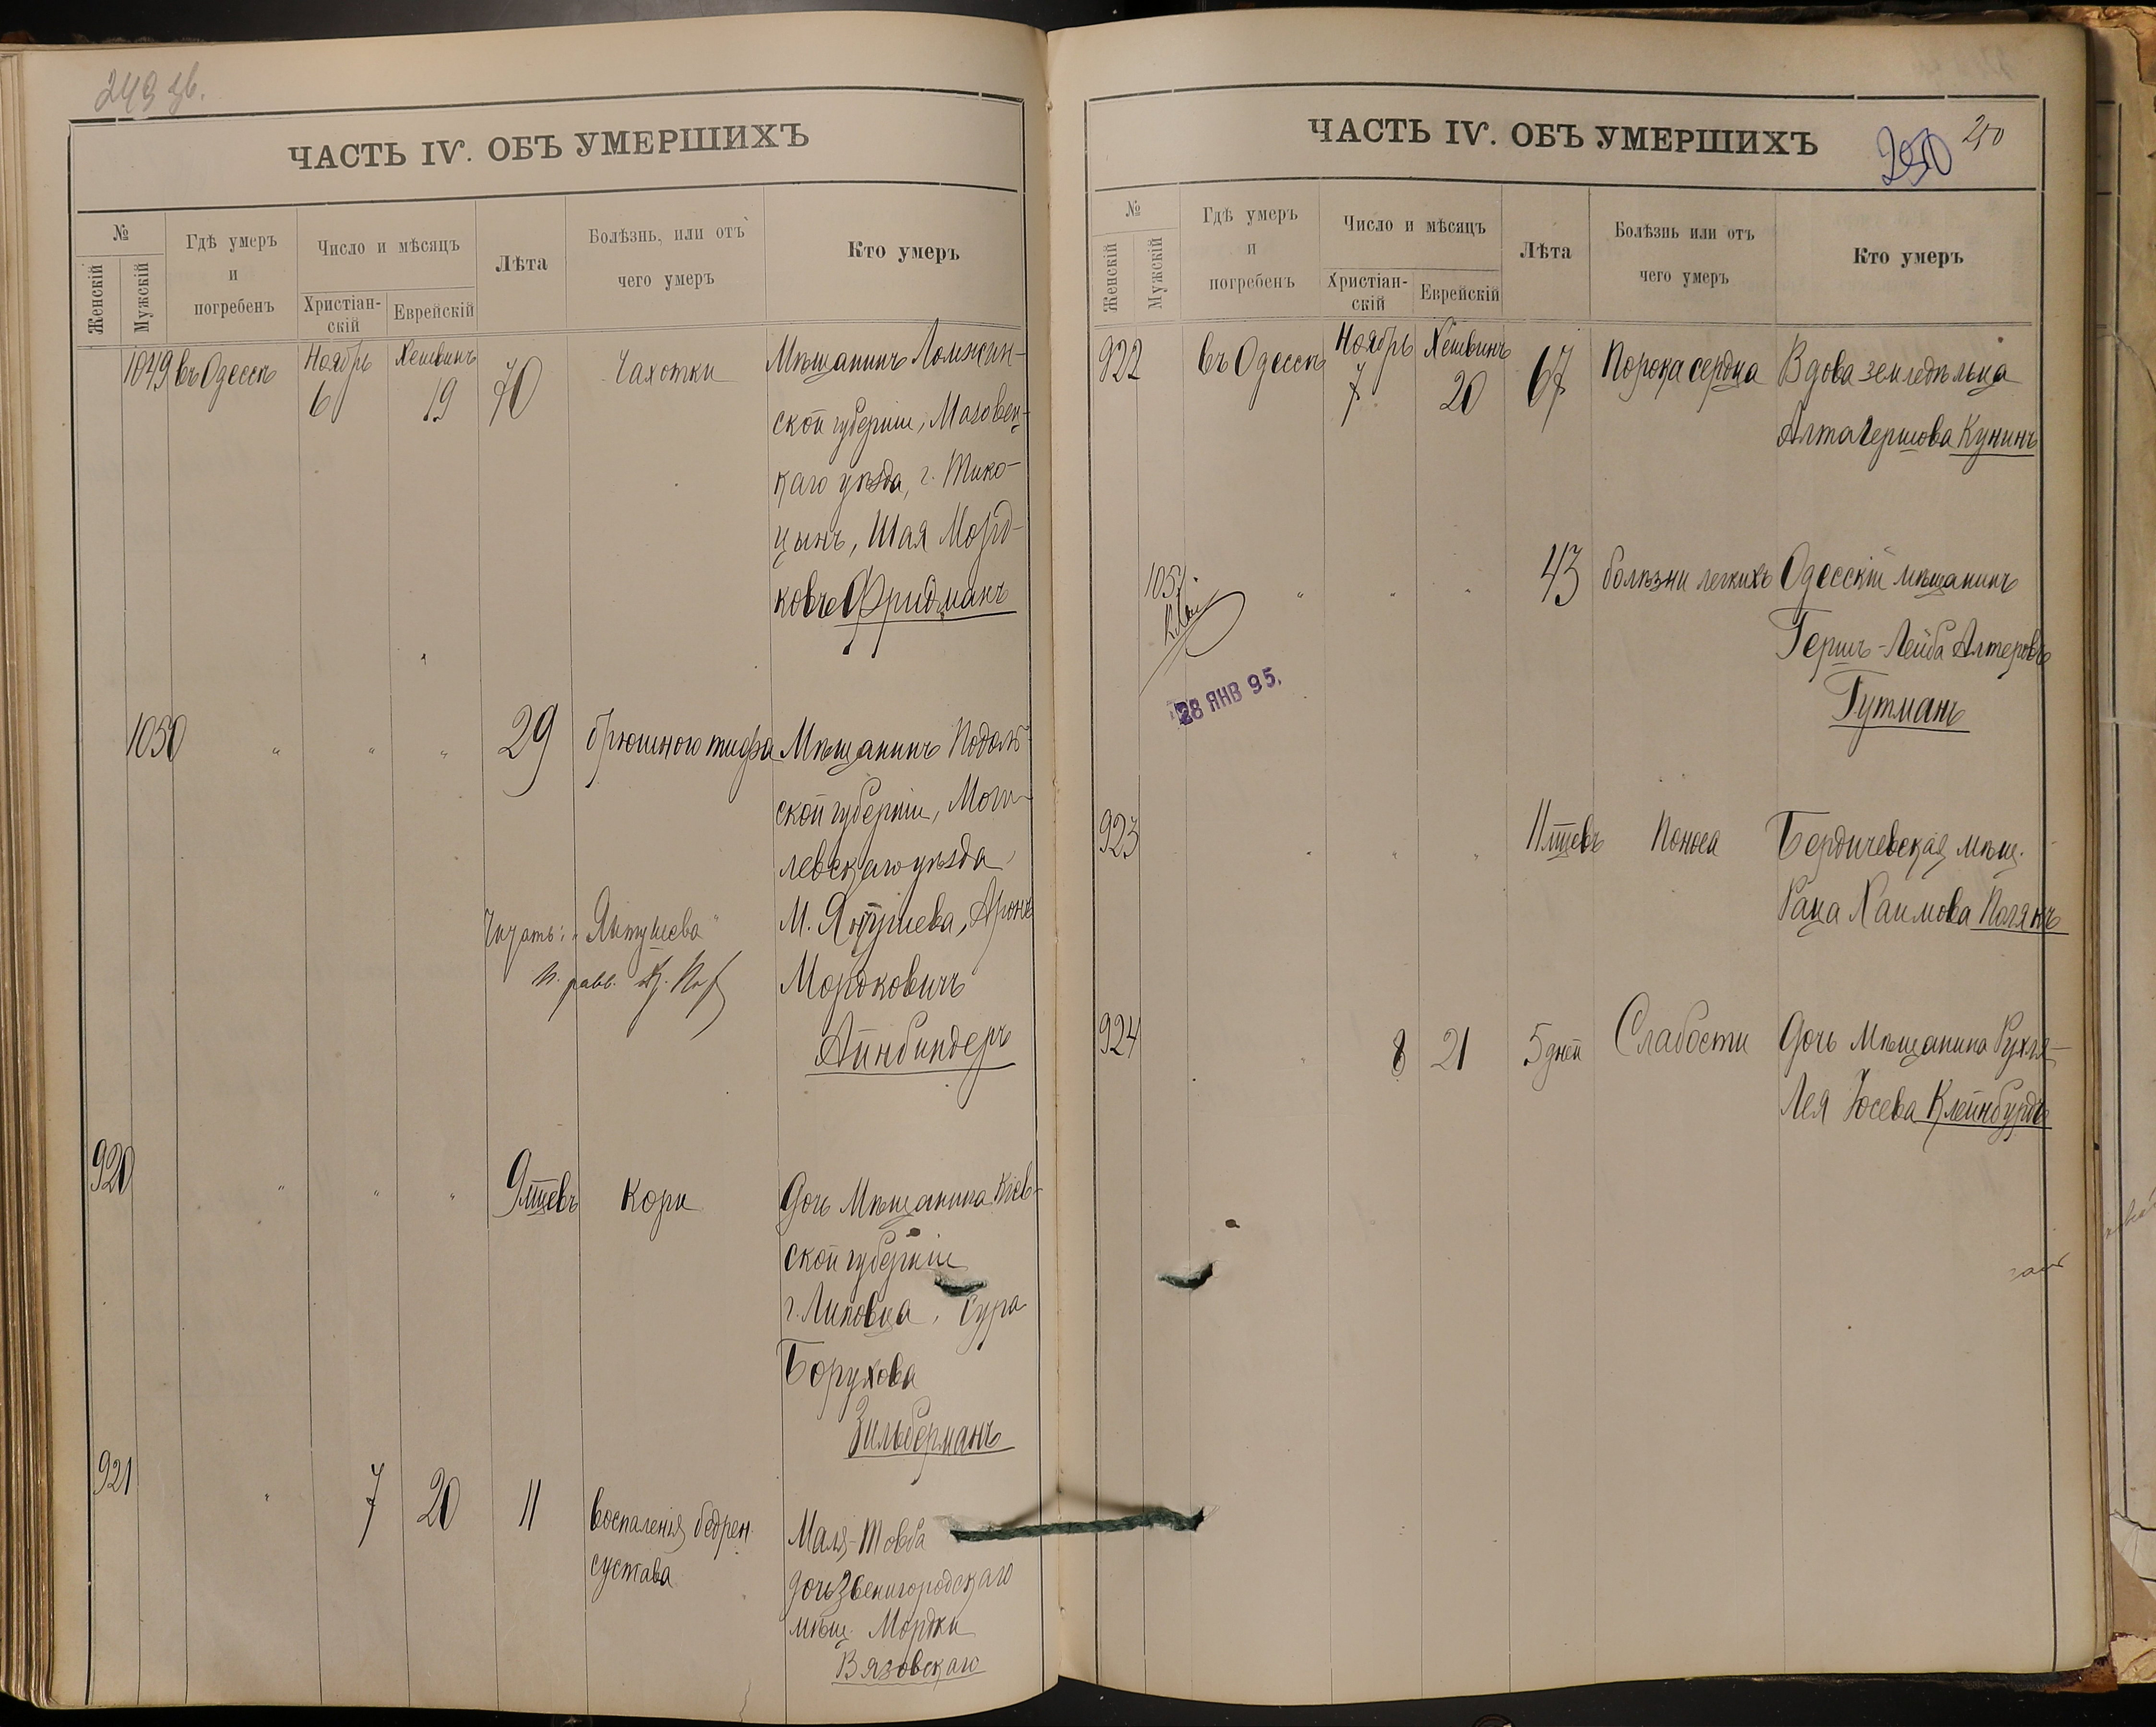 249 зв.
ЧАСТЬ IV. ОБЪ УМЕРШИХЪ
№
Женскій
Мужскій
Гдѣ умеръ
и
погребенъ
Число и мѣсяцъ
Христіан-
скій
Еврейскій
Лѣта
Болѣзнь, или отъ
чего умеръ
Кто умеръ
1049 въ Одессѣ Ноябрь 6 Хешвинъ 19 70 Чахотки Мѣщанинъ Ломжин-
ской губерніи, Мазовец-
каго уѣзда, г. Тико-
цынъ, Шая Морд-
ковъ Фридманъ
1050 " " " 29 брюшного тифа Мѣщанинъ Подоль-
ской губерніи, Моги-
левскаго уѣзда,
М. Ялтушева, Аронъ
Мордковичъ
Айнбиндеръ
Читать: „Ялтушева"
920 " " " 9 мцевъ Кори Дочь Мѣщанина Кіев-
ской губерніи
г. Липовца, Сура
Борухова
Зильберманъ
921 " 7 20 11 воспаленія бедрен. Маля-Товба
сустава дочь Звенигородскаго
мѣщ. Мордки
Вязовскаго
ЧАСТЬ IV. ОБЪ УМЕРШИХЪ
250 250
№
Женскій
Мужскій
Гдѣ умеръ
и
погребенъ
Число и мѣсяцъ
Христіан-
скій
Еврейскій
Лѣта
Болѣзнь или отъ
чего умеръ
Кто умеръ
922 въ Одессѣ Ноябрь 7 Хешвинъ 20 67 Порока сердца Вдова земледѣльца
Алта Гершова Кунинъ
1051 " " " 43 болѣзни легкихъ Одесскій мѣщанинъ
Гершъ-Лейба Алтеровъ
Гутманъ
28 ЯНВ 95.
923 " " " 11 мцевъ Поноса Бердичевская мѣщ.
Раца Хаимова Полякъ
924 " 8 21 5 дней Слабости Дочь Мѣщанина Рухля-
Лея Іосева Клейнбурдъ